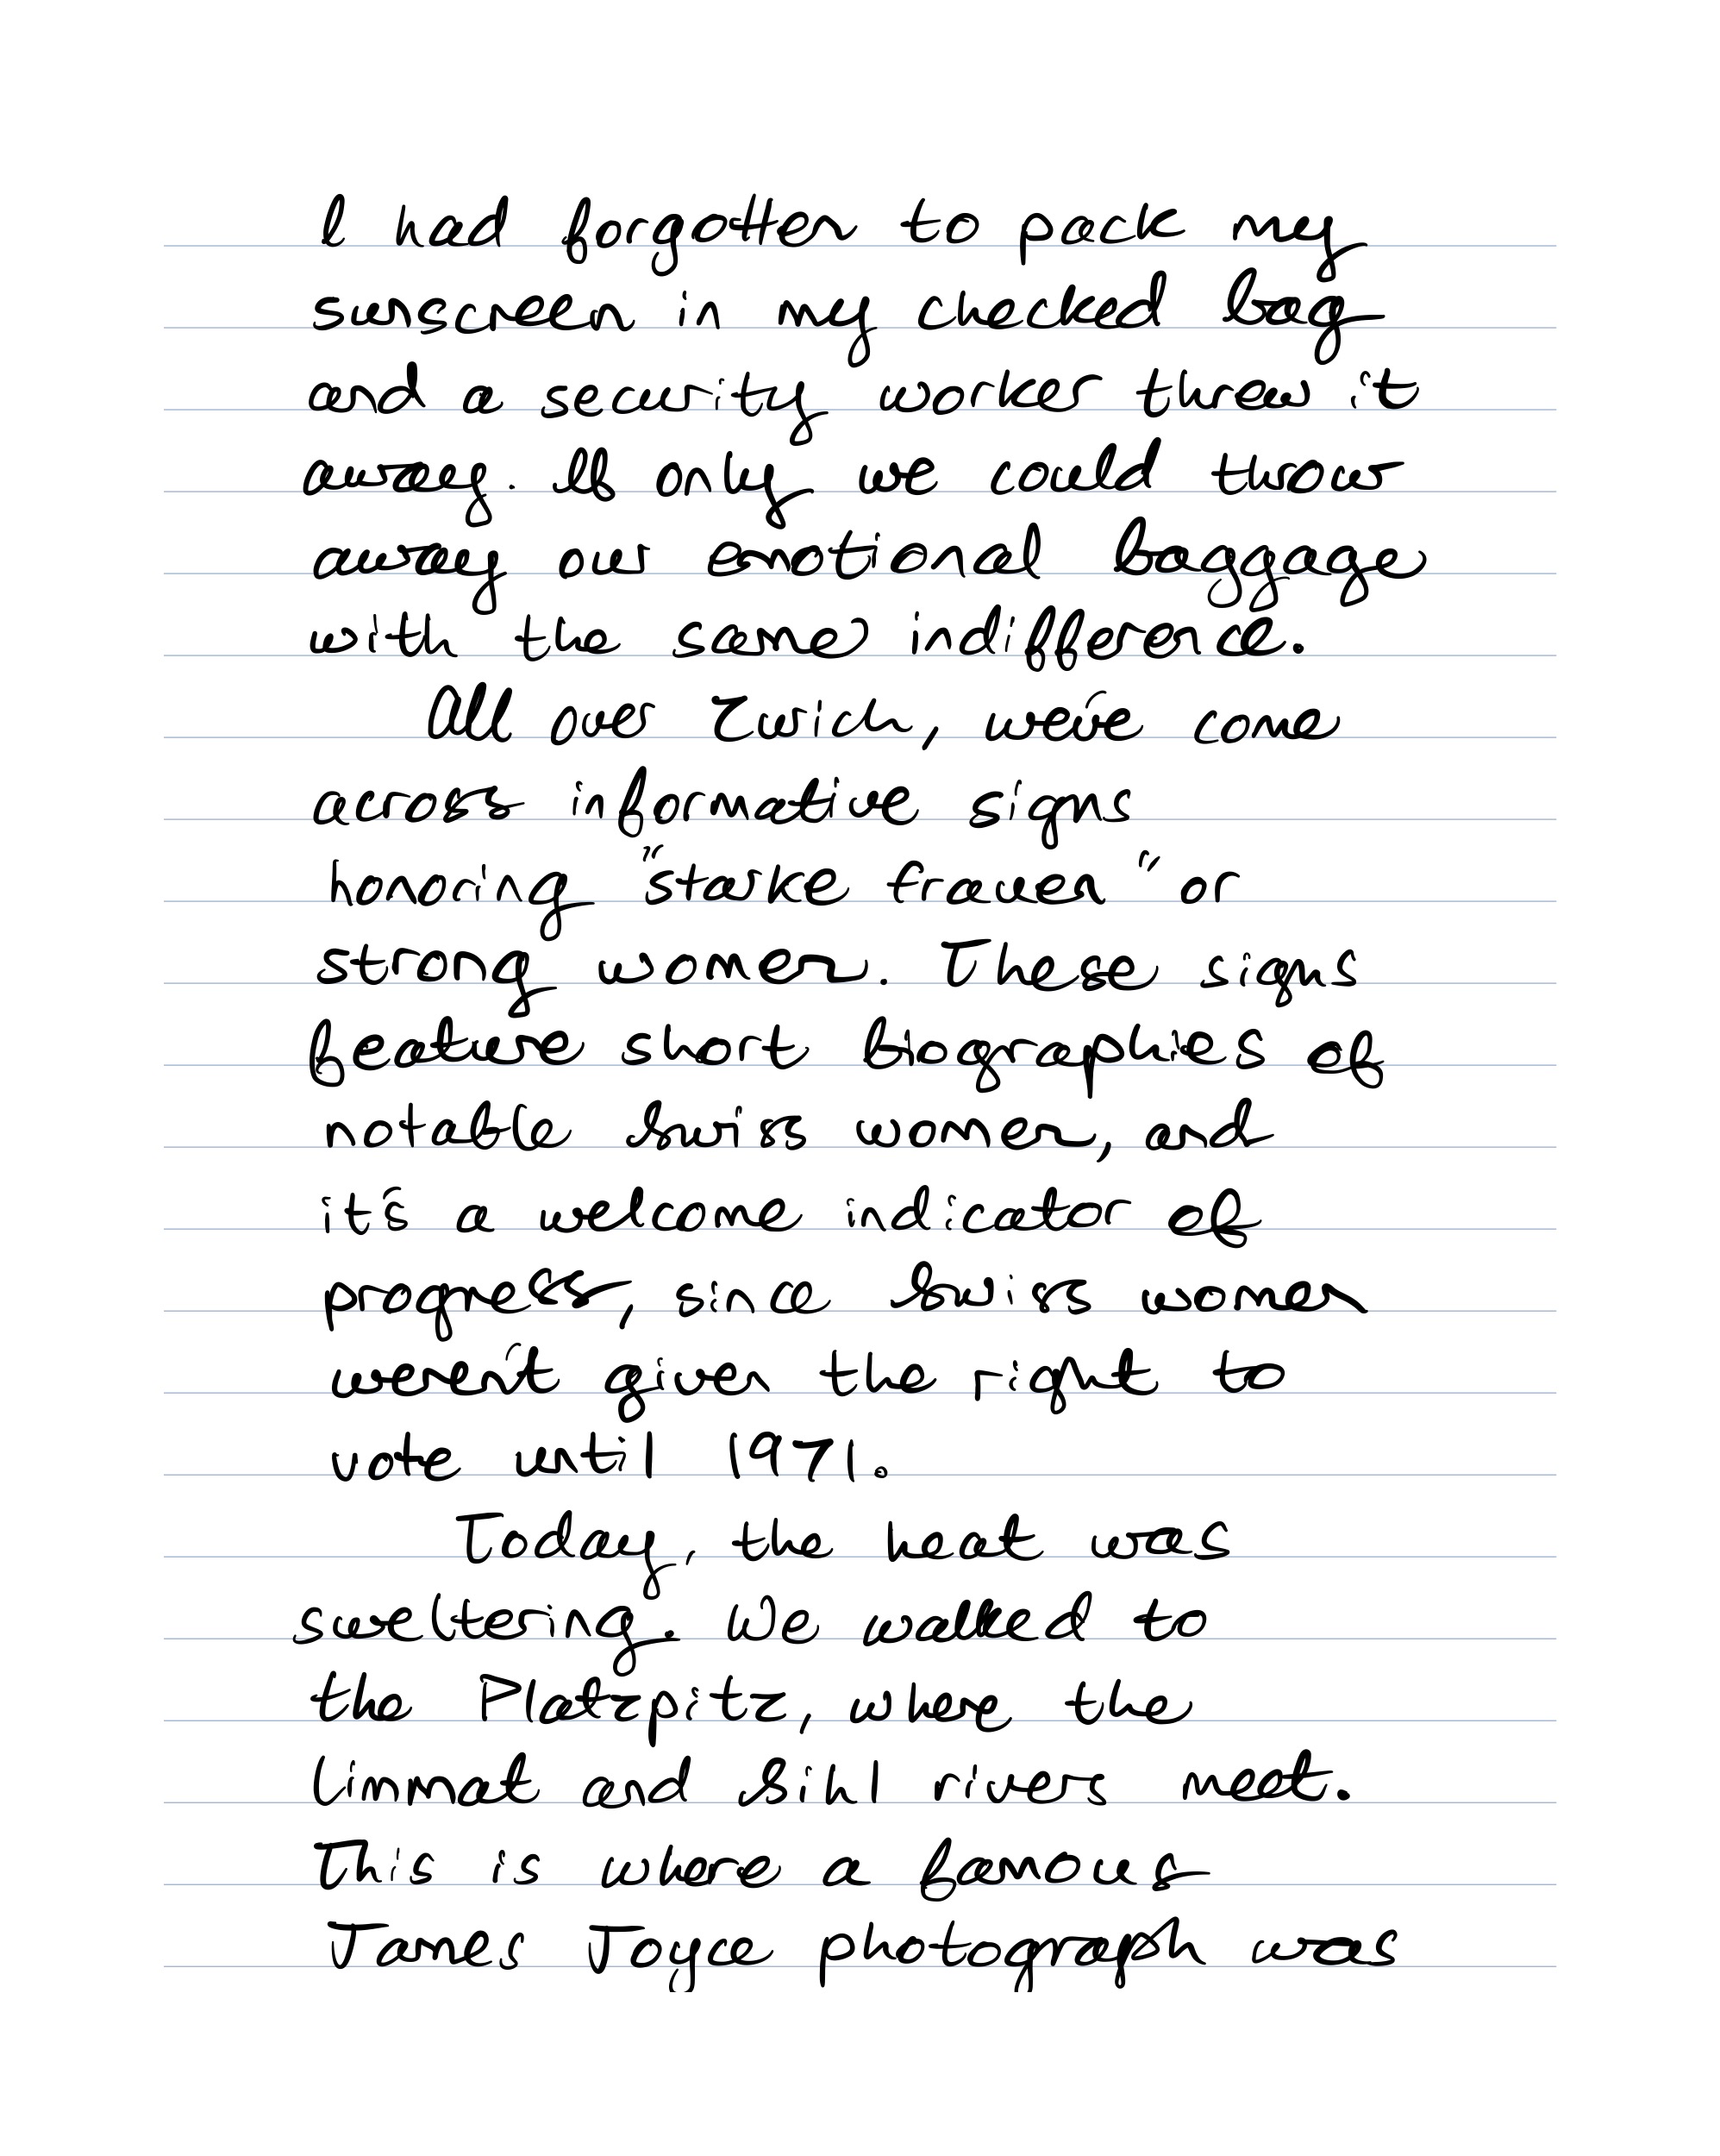 I had forgotten to pack my
sunscreen in my checked bag
and a security worker threw it
away. If only we could throw
away our emotional baggage
with the same indifference.
All over Zurich, we've come
across informative signs
honoring "starke frauen" or
strong women. These signs
feature short biographies of
notable Swiss women, and
it's a welcome indicator of
progress, since Swiss women
weren't given the right to
vote until 1971.
Today, the heat was
sweltering. We walked to
the Platzpitz, where the
Limmat and Sihl rivers meet.
This is where a famous
James Joyce photograph was